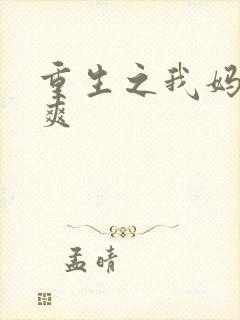 重生之我妈
爽
孟晴